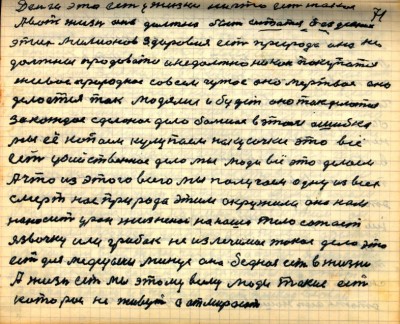 Деньги это есть у жизни ничто есть такая 71
А вот жизнь она должна быть
этих миллионов здоровия есть природа она не
должна продоваться и не должна никак покупатся
живое природное совсем чужое оно мертвое оно
делается так людями и будет оно так делатся
за каждое сделаное дело большая в этом ошибка
мы её копаем купуляем на кусочки это всё
есть убийственное дело мы люди всё это делаем
А что из этого всего мы получаем одну из всех
смерть нас природа этим окружила она нам
наносит урон жизненой на наше тило сажает
язвочку или грибок не излечимое такое дело это
есть для медецыны минус она бедная есть в жизни
А жизнь есть мы этому всему люди такие есть
которые не живут а отмирают